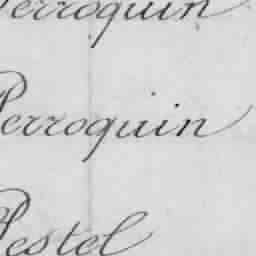 Perroquin
Perroquin
Pestel